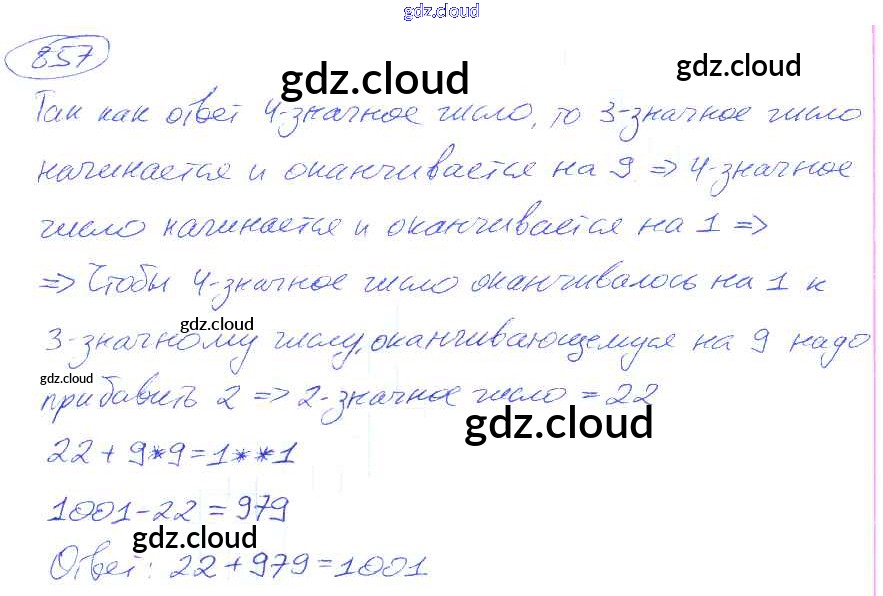 gdz.cloud
857
gdz.cloud
gdz.cloud
Так как ответ 4-значное число, то 3-значное число
начинается и оканчивается на 9 => 4-значное
число начинается и оканчивается на 1 =>
=> Чтобы 4-значное число оканчивалось на 1 к
gdz.cloud
3-значному числу, оканчивающемуся на 9 надо
gdz.cloud
прибавить 2 => 2-значное число = 22
gdz.cloud
22 + 9*9 = 1**1
1001 - 22 = 979
gdz.cloud
Ответ: 22 + 979 = 1001